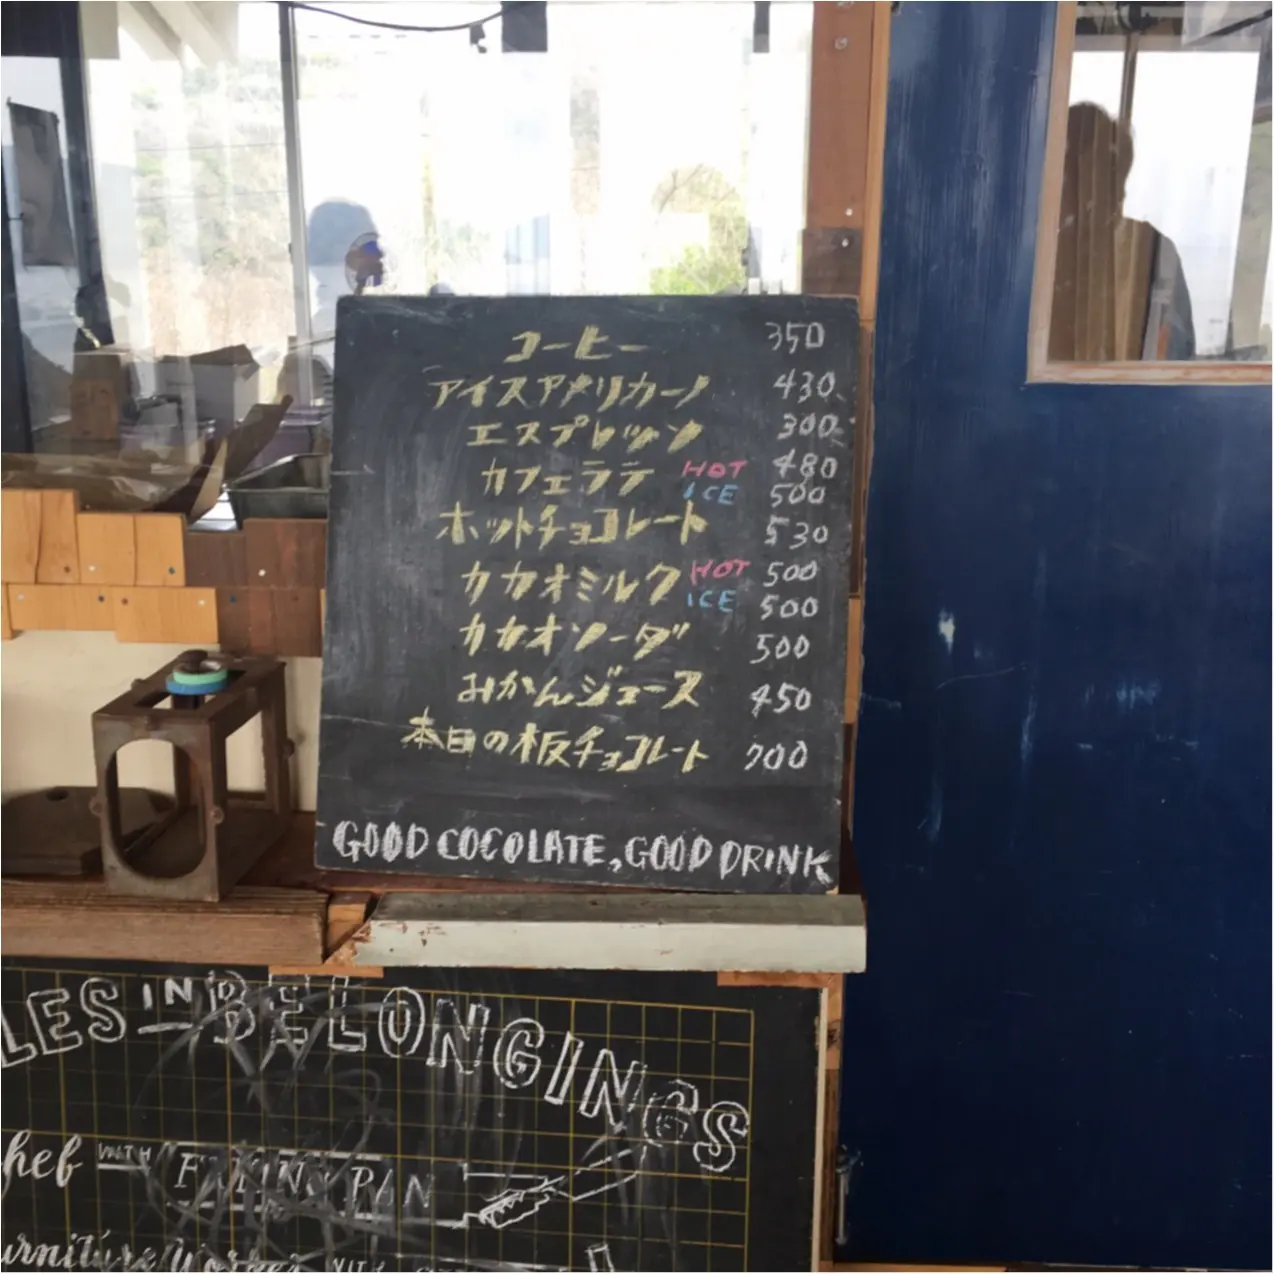 コーヒー 350
アイスアメリカーノ 430
エスプレッソ 300
カフェラテ HOT 480
ICE 500
ホットチョコレート 530
カカオミルク HOT 500
ICE 500
カカオソーダ 500
みかんジュース 450
本日の板チョコレート 700
GOOD COCOLATE, GOOD DRINK
LES IN BELONGINGS
hef WITH PAN
urniture Worker WITH